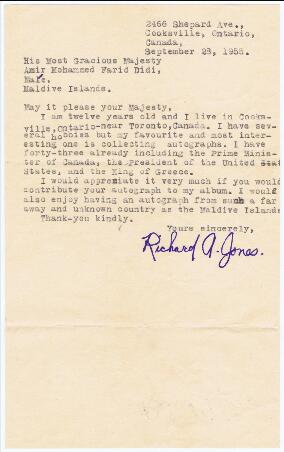 2466 Shepard Ave.,
Cooksville, Ontario,
Canada,
September 28, 1955.
His Most Gracious Majesty
Amir Mohammed Farid Didi,
Male,
Maldive Islands.
May it please your Majesty,
I am twelve years old and I live in Cooks-
ville, Ontario-near Toronto, Canada. I have sev-
eral hobbies but my favourite and most inter-
esting one is collecting autographs. I have
forty-three already including the Prime Minis-
ter of Canada, the President of the United Stat
States, and the King of Greece.
I would appreciate it very much if you would
contribute your autograph to my album. I would
also enjoy having an autograph from such a far
away and unknown country as the Maldive Islands
Thank-you kindly.
Yours sincerely,
Richard A. Jones.